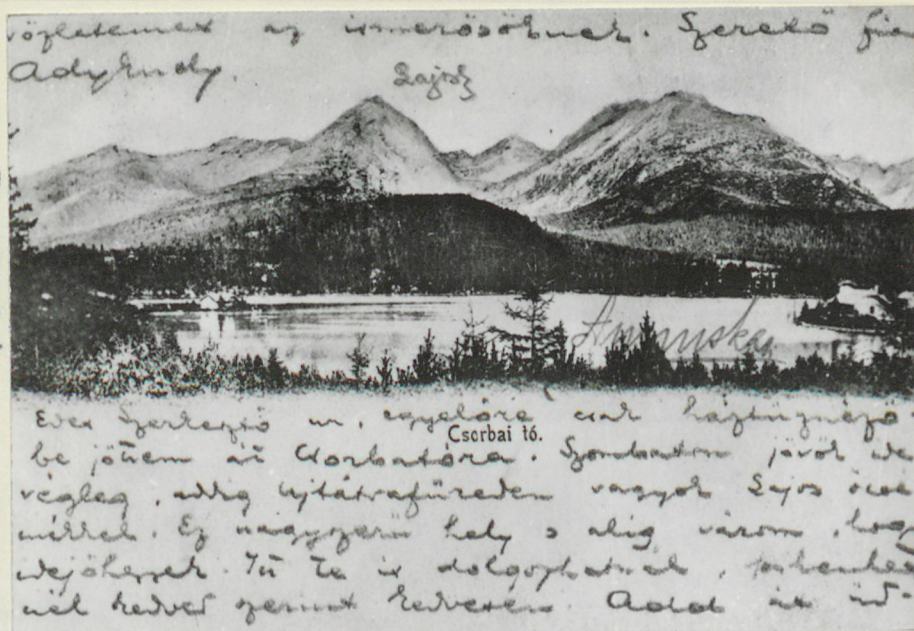 üdvözletemet az ismerősöknek. Szerető
Ady Endy.
Lajos
Annuska
Édes Szerkesztő úr, egyelőre csak háztűznéző-
Csorbai tó.
be jöttem át Csorbatóra. Szombaton jövök ide
végleg, addig Ujtátrafüreden vagyok Lajos öcsé-
mékkel. Ez nagyszerű hely s alig várom, hogy
idejöhessek. Itt Te is dolgozhatnál, pihenhet-
nél kedved szerint kedvesen. Add át üd-